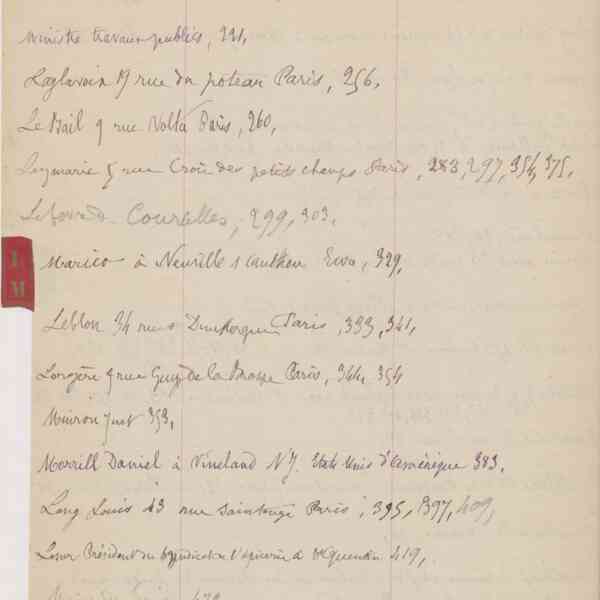 Ministre travaux publics, 331,
Laglavoix 19 rue du poteau Paris, 256,
Le Bail 9 rue Volta Paris, 260,
Leymarie 5 rue Croix des petits champs Paris, 283, 297, 354, 375,
Courcelles, 299, 303,
L
M
Marico à Neuville s Eure, 329,
Leblon 34 rue Dunkerque Paris, 333, 341,
9 rue Guy de la Brosse Paris, 344, 354
Minron Just 353,
Morrill Daniel à Vineland N.J. Etats Unis d'amérique 383,
Long Louis 43 rue Saintonge Paris, 395, 397, 409,
Président du syndicat l'épicerie à St Quentin 419,